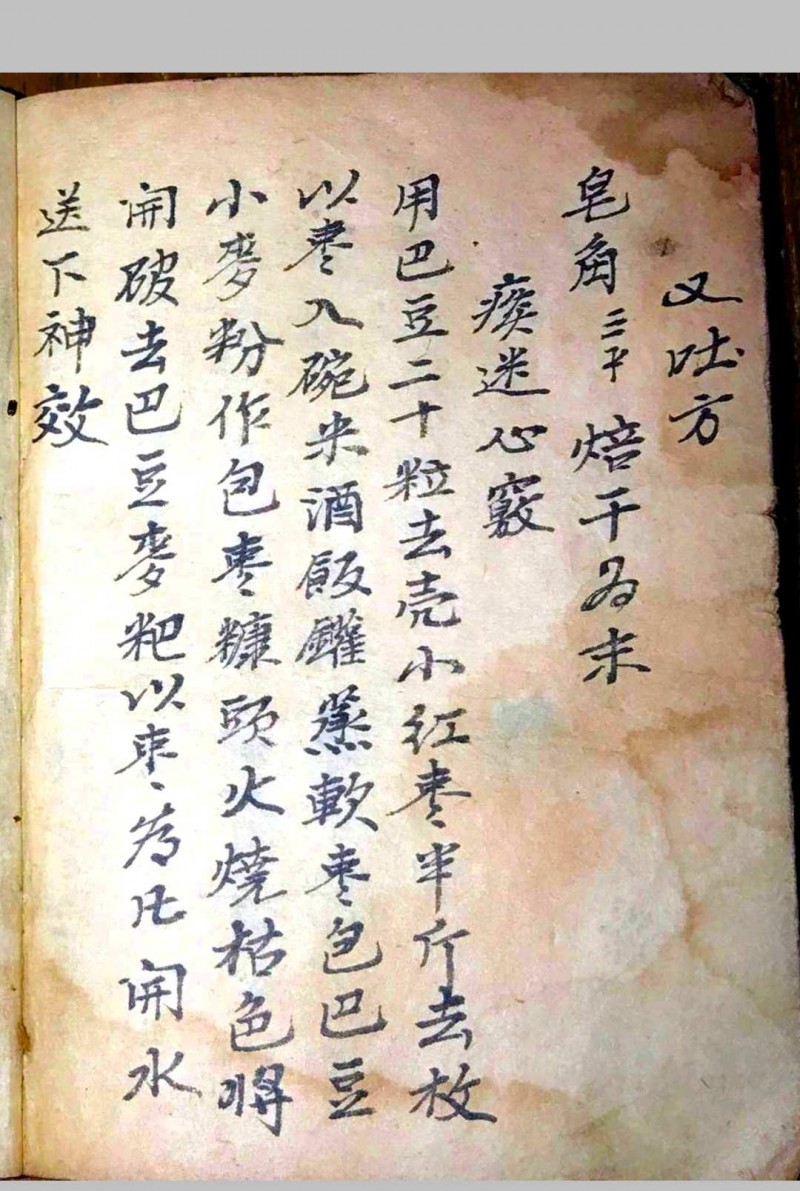 又吐方
皂角三子焙干為末
痰迷心竅
用巴豆二十粒去壳小红枣半斤去枚
以枣入碗米酒飯罐蒸軟枣包巴豆
小麥粉作包枣糠頭火燒枯色將
開破去巴豆麥粑以枣為𠂆開水
送下神效